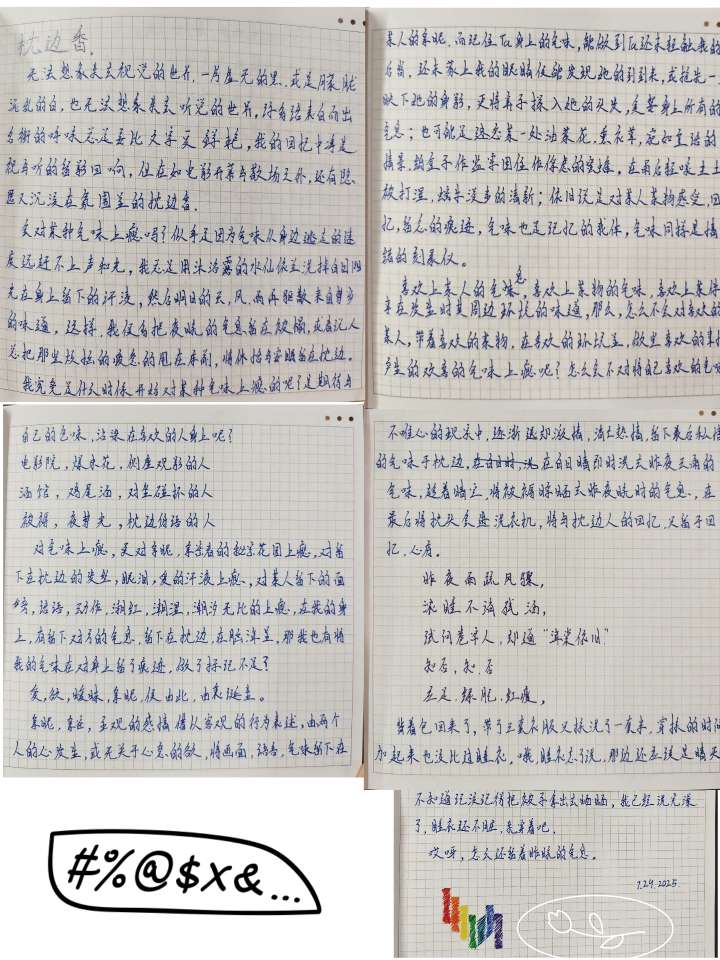 枕边香.
无法想象失去视觉的世界,一片虚无的黑,或是朦胧
混乱的白,也无法想象失去听觉的世界,许多语言自而出
名树的呼唤总是要比文字更鲜艳,我的回忆中净是
视与听的留影回响,但在如电影开幕与散场之外,还有隐
匿又沉浸在氛围里的枕边香.
会对某种气味上瘾吗?似乎是因为气味从身边逃走的速
度远赶不上声和光,我总是用沐浴露的水仙依兰洗掉白日阳
光在身上留下的汗渍,然后明日的云、风、雨再驱散来自梦乡
的味道,这样,我仅仅把夜晚的气息留在被褥,
总把那里放松的疲惫的甩在床前,将休憩与安眠留在枕边.
我究竟是什么时候开始对某种气味上瘾的呢?是期待与
某人的亲昵,而记住Ta身上的气味,能做到Ta还未轻触我的
后背,还未蒙上我的眼睛便能发现她的到来,或提先一
眼下她的身影,更将鼻子探入她的发夹,更要身上所有的
气息;也可能是迷恋某一处油菜花,薰衣草,宛如童话的
情景,给盒子作监牢困住作俘虏的空气,在雨后轻嗅土土
被打湿,烧来漫步的清新;依旧说是对某人某物感受,回
忆,留恋的痕迹,气味也是记忆的载体,气味同样是情
绪的刻录仪.
喜欢上某人的气息,喜欢上某物的气味,喜欢上某件
事在发生时其周边环境的味道,那么,怎么不会对喜欢的
某人,带着喜欢的某物,在喜欢的环境里,做出喜欢的事情
产生的欢喜的气味上瘾呢?怎么会不对将自己喜欢的气味
自己的气味,沾染在喜欢的人身上呢?
电影院,爆米花,侧座观影的人
酒馆,鸡尾酒,对坐碰杯的人
被褥,夜梦光,枕边侍语的人
对气味上瘾,是对亲昵,亲密着的秘密花园上瘾,对留
下在枕边的发丝,眼泪,爱的汗液上瘾,对某人留下的画
旁,话语,动作,潮红,潮湿,潮汐无比的上瘾,在我的身
上,有留下对方的气息,留下在枕边,在脑海里,那我也有将
我的气味在对身上留了痕迹,做了标记不是?
爱,欲,暧昧,亲昵,便由此,由衷诞生.
亲昵,拿主,主观的感情借以客观的行为表述,由两个
人的心发生,或无关乎心意的欲,将画面,语言,气味留下在
不唯心的现实中,逐渐退却激情,淌去热情,留下最后私情
的气味于枕边,在白日晴阳时洗去昨夜云雨的
气味,趁着晴空,将被褥晾晒去昨夜晚时的气息,在
最后将枕头套进洗衣机,将与枕边人的回忆,又留于回
忆,心房.
昨夜雨疏风骤,
浓睡不消残酒,
试问卷帘人,却道“海棠依旧”
知否,知否
应是,绿肥,红瘦,
背着包回来了,带了三套衣服又换洗了一套来,穿换的时间
加起来也没比这睡衣,哦,睡衣忘了洗,那边还应该是晴天
不知道记没记得把被子拿出去晒晒,我已经洗完澡
了,睡衣还不脏,亲穿着吧.
哎呀,怎么还留着昨晚的气息.
7.29.2025
#%@$X&...